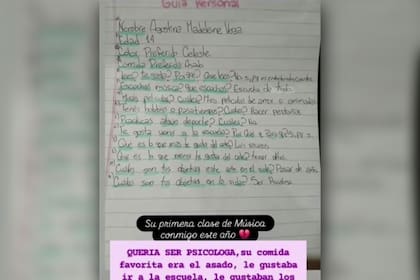 Guia Personal
Nombre Agostina Madelaine Vega
Edad 14
Color Preferido Celeste
Comida Preferida Asado
Lees? Te gusta? Porque? Que lees? No
Escuchas música? Que escuchas? Escucho de todo
Miras peliculas? Cuales? Miro peliculas de amor o animadas
Tenes hobbies o pasatiempos? Cuales? Hacer postres
Practicas algun deporte? Cuales? No
Te gusta venir a la escuela? Por Que
Que es lo que mas te gusta del
Que es lo que menos te gusta del
Cuales son tus objetivos este año en el Pasar de año
Cuales son tus objetivos en la vida? Ser
Su primera clase de Música
conmigo este año 💔
QUERIA SER PSICOLOGA,su comida
favorita era el asado, le gustaba
ir a la escuela, le gustaban los